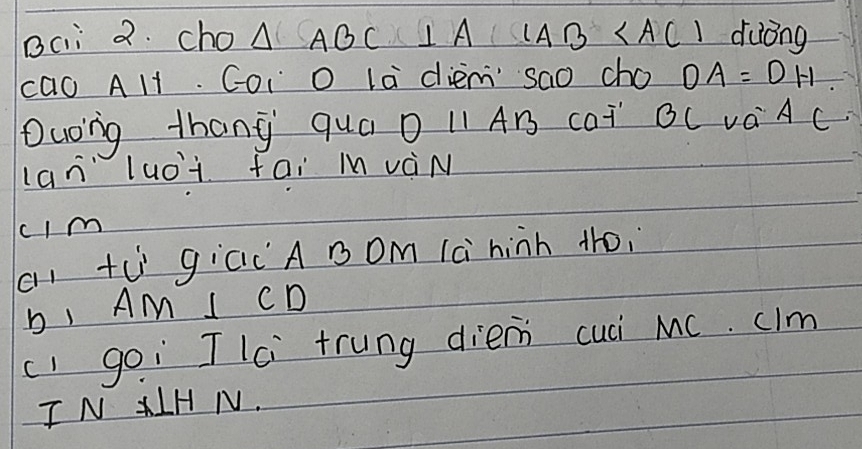 Bài 2. cho Δ ABC ⊥ A (AB < AC) đường
cao AH. Gọi D là điểm sao cho DA = DH.
Đường thẳng qua D // AB cắt BC và AC
lần lượt tại M và N
c/m
a, tứ giác ABDM là hình thoi
b, AM ⊥ CD
c, gọi I là trung điểm của MC. c/m
IN ⊥ HN.